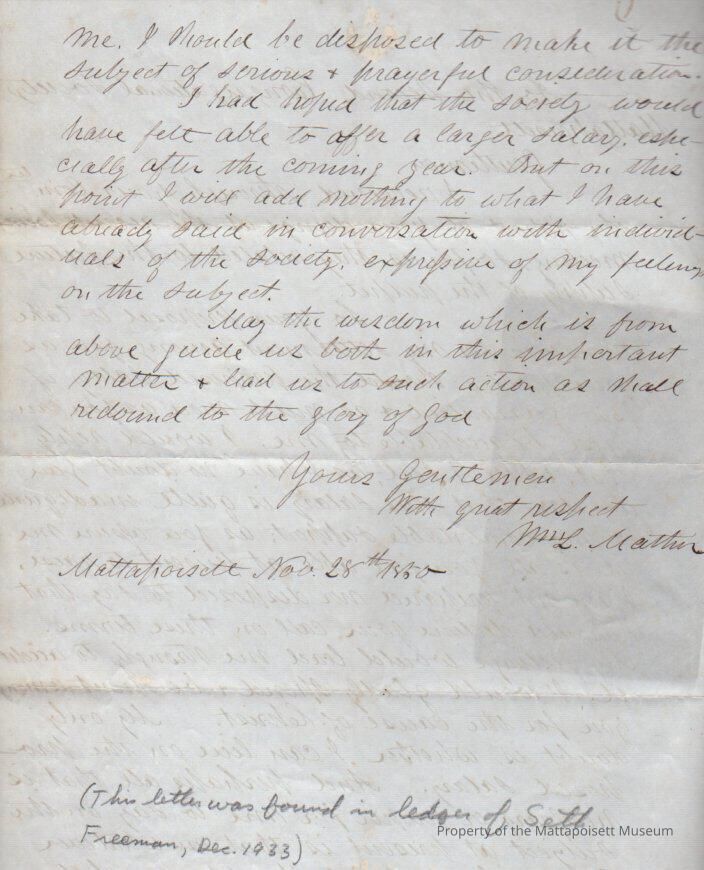 me. I should be disposed to make it the
subject of serious & prayerful consideration.
I had hoped that the society would
have felt able to offer a larger salary. espe-
cially after the coming year. But on this
point I will add nothing to what I have
already said in conversation with individ-
uals of the society. expressive of my feelings
on the subject.
May the wisdom which is from
above guide us both in this important
matter & lead us to such action as shall
redound to the glory of God
Yours Gentlemen
With great respect
Wm L. Mather
Mattapoisett Nov. 28th 1850
(This letter was found in ledger of Seth
Freeman, Dec. 1933)
Property of the Mattapoisett Museum